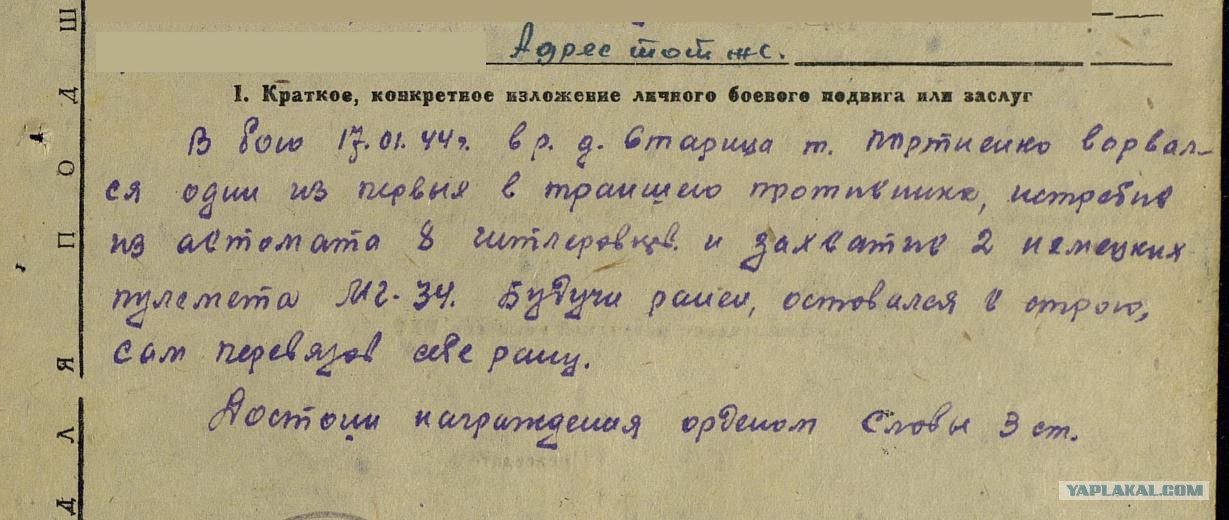 Адрес тот же.
I. Краткое, конкретное изложение личного боевого подвига или заслуг
В бою 17.01.44г. в р. д. Старица т. Портненко ворвал-
ся один из первых в траншею противника, истребив
из автомата 8 гитлеровцев и захватив 2 немецких
пулемета МГ-34. Будучи ранен, оставался в строю,
сам перевязав себе рану.
Достоин награждения орденом Славы 3 ст.
ДЛЯ ПОДШ
YAPLAKAL.COM